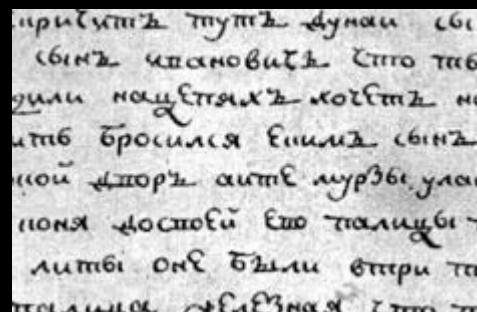 кричитъ тутъ дунаи сы
сынъ ивановичъ что тв
дили нацепяхъ хочетъ на
ить бросился екимъ сынъ
кой дворъ аите мурзы ула
коня доспей ево палицы
литы оне были втри
палица железная что